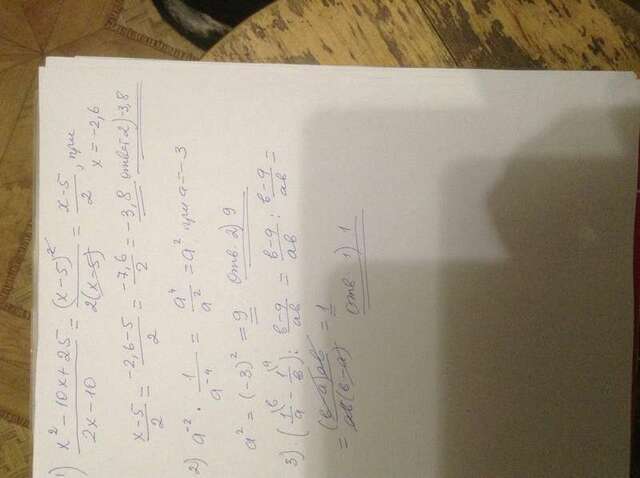 1) (x² - 10x + 25)/(2x - 10) = (x-5)²/(2(x-5)) = (x-5)/2, при x = -2,6
(x-5)/2 = (-2,6-5)/2 = -7,6/2 = -3,8 ответ 2) -3,8
2) a⁻² · 1/a⁻⁴ = a⁴/a² = a² при a = -3
a² = (-3)² = 9 Отв. 2) 9
3) (1/a - 1/b) : (b-a)/ab = (b-a)/ab : (b-a)/ab =
= (b-a)ab/ab(b-a) = 1 Отв 1) 1